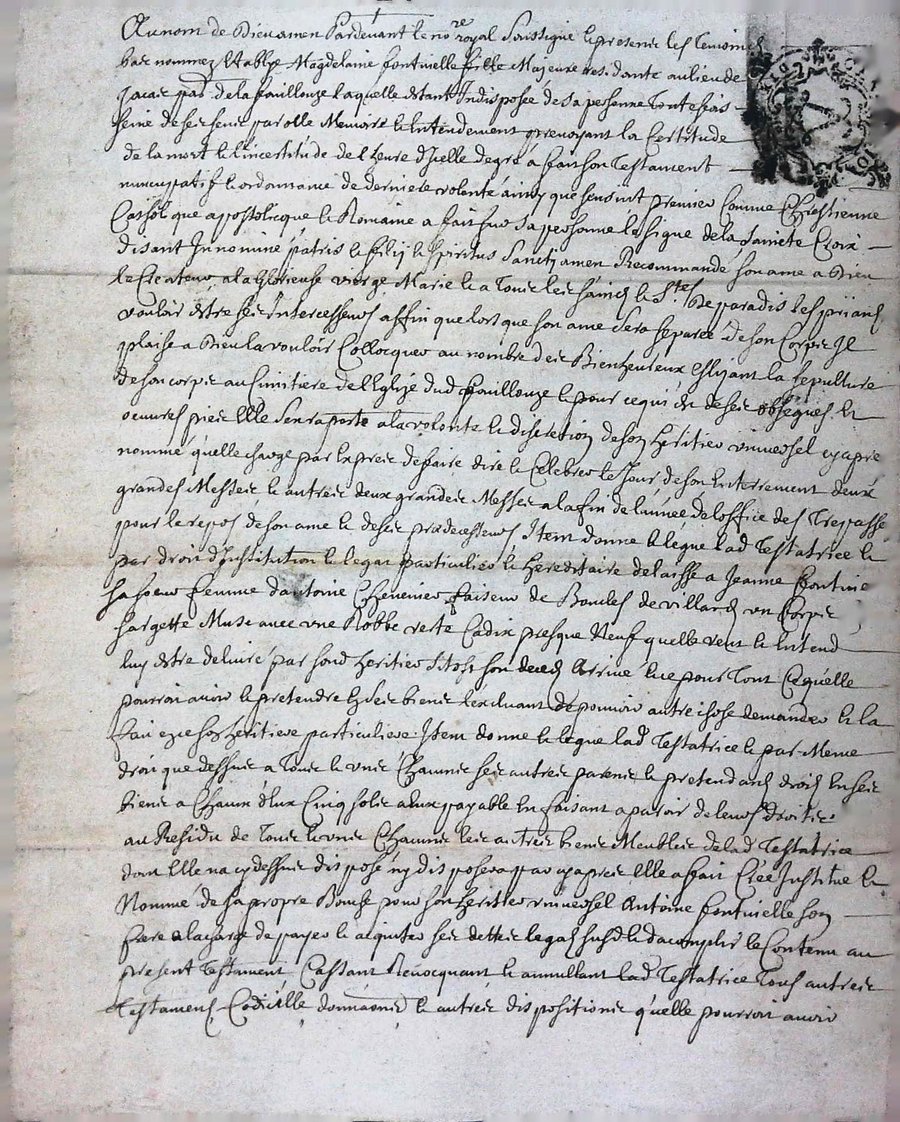 Au nom de Dieu amen Pardevant le no.re royal Soussigné & presens les Temoins
bas nommez establye Magdelaine fontvielle fille Majeure residante au lieu de
par. de la fouillouze laquelle estant Indisposée de sa personne Toutesfois
saine de ses sens parolle Memoire & Entendement prevoyant la Certitude
de la mort & l'incertitude de l'heure d'Icelle de gré a fait son Testament
nuncupatif & ordonnance de derniere volonté ainsy que sensuit premier Comme Chrestienne
Catholique apostolicque & Romaine a fait sur sa personne le signe de la Sainte Croix
disant In nomine patris & filij & Spiritus Sancti amen Recommandé son ame a Dieu
le Createur, a la Glorieuse vierge Marie & a Tous les saincts & S.tes de paradis les priant
vouloir estre ses Intercesseurs affin que lors que son ame sera separée de son Corps Il
plaise a Dieu la vouloir Collocquer au nombre des Bienheureux eslizant la sepulture
de son corps au Cimitiere de l'Eglize dud fouillouze & pour ce qui est de ses obseques &
oeuvres pies Elle sen raporte a la volonté & discretion de son heritier universel cy apres
nommé quelle charge par Expres de faire dire & Celebrer le Jour de son Enterrement deux
grandes Messes & autres deux grandes Messes a la fin de l'année de l'office des Trepassés
pour le repos de son ame & de ses predecesseurs Item donne & legue lad Testatrice &
par droit d'Institution & legat particulier & hereditaire delaisse a Jeanne fontvie
sa soeur femme d'antoine faiseur de Boucles de villard un Corps
sargette Musc avec une Robbe verte Cadix presque Neuf quelle veut & Entend
luy estre delivré par sond heritier sitost son deces arrivé & ce pour Tout ce quelle
pourroit avoir & pretendre Ez ses biens lexcluant de pouvoir autre chose demander & la
fait Ez ce son heritiere particuliere. Item donne & legue lad Testatrice & par Meme
droit que dessus a Tous & uns Chacuns ses autres parens & pretendans droit En ses
biens a Chacun d'Eux Cinq sols a Eux payable En faisant aparoir de leurs droits.
au Residu de Tous & uns Chacuns les autres biens Meubles de lad Testatrice
dont Elle na cy dessus disposé ny disposera par cy apres elle a fait Creé Institué &
Nommé de sa propre Bouche pour son heritier universel Antoine fontvielle son
frere a la charge de payer & aquiter ses dettes legats susd & d'acomplir le Contenu au
present Testament Cassant Revocquant & annullant lad Testatrice Tous autres
Testaments Codicille donnaons & autres dispositions quelle pourroit avoir